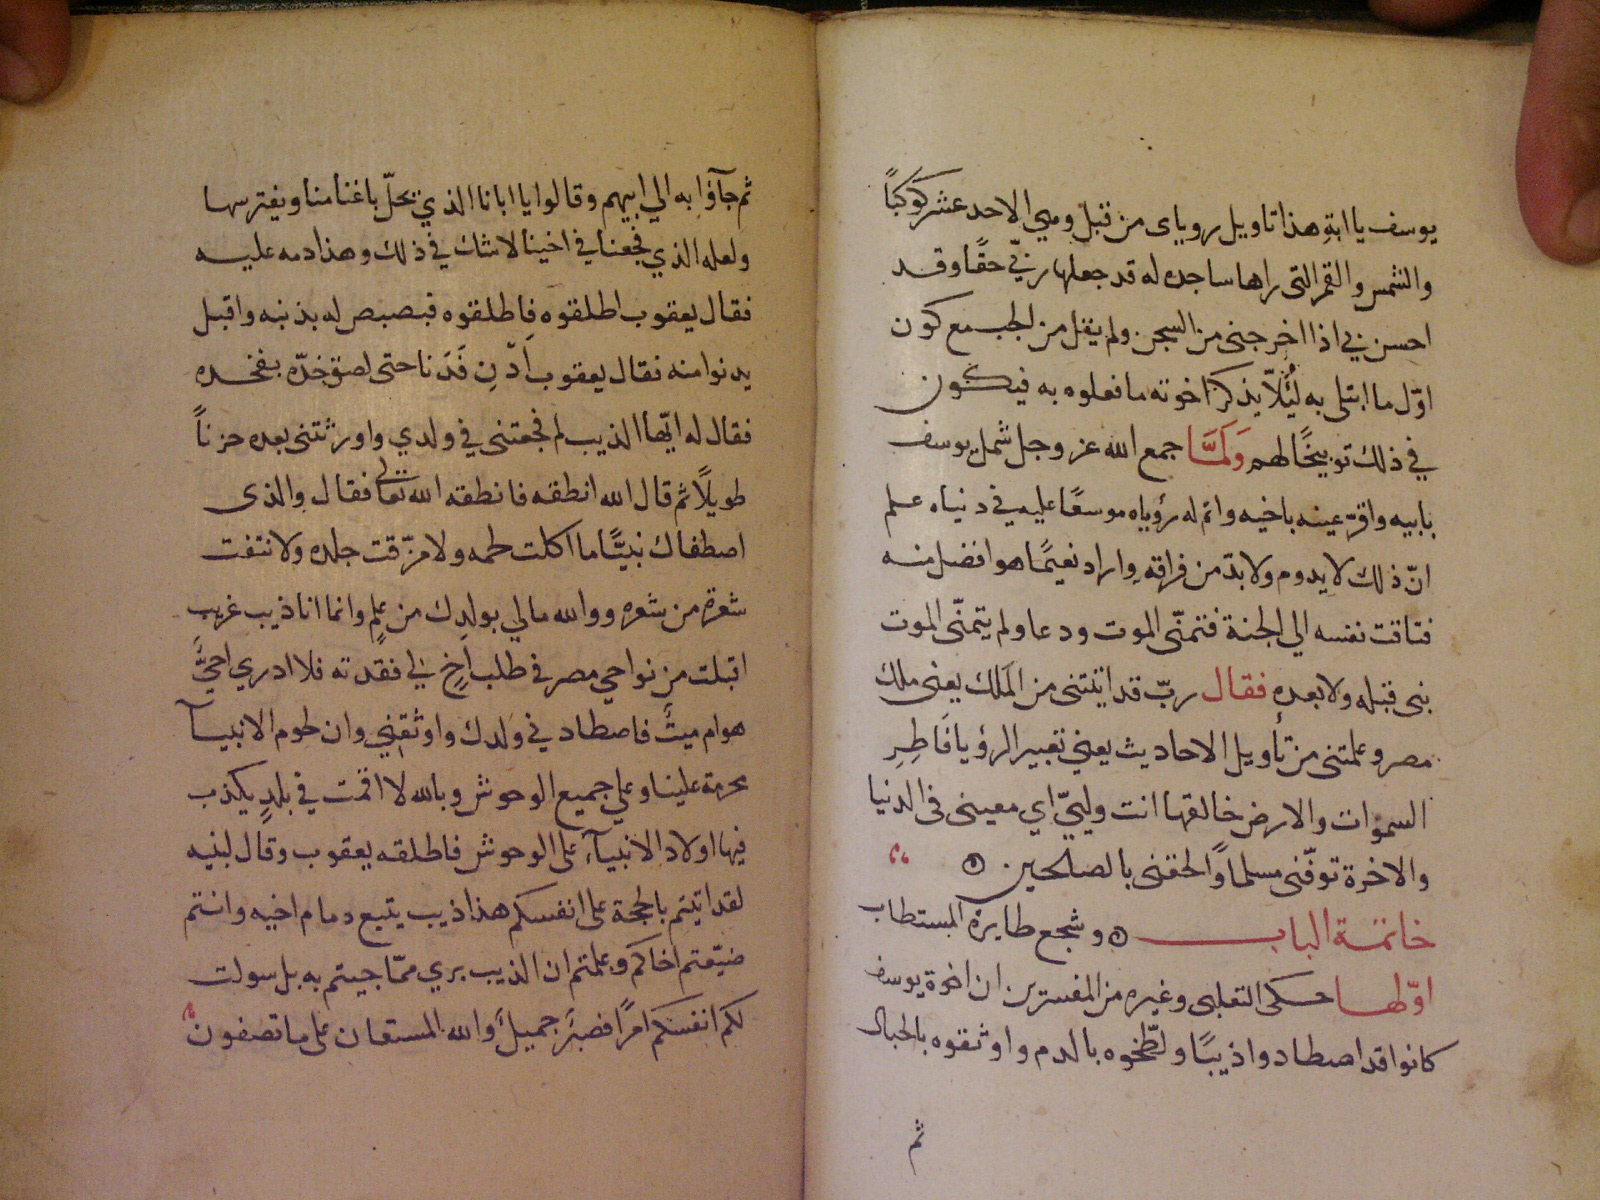 يوسف يا ابة هذا تاويل روياى من قبل وهي الاحد عشر كوكباً
والشمس والقمر التى راها ساجده له قد جعلها ربي حقًا وقد
احسن بي اذا اخرجنى من السجن ولم يقل من الجب مع كون
اوّل ما ابتلى به ليُلاّ يذكر اخوته ما فعلوه به فيكون
في ذلك توبيخًا لهم وَلَمَّا جمع الله عز وجل شمل يوسف
بابيه واقرّ عينه باخيه واتم له رؤياه موسعًا عليه في دنياه علم
انّ ذلك لا يدوم ولا بدّ من فراقه واراد نعيمًا هو افضل منه
فتاقت نفسه الي الجنة فتمنّى الموت ودعا ولم يتمنّى الموت
نبى قبله ولا بعده فقال ربّ قد اتيتنى من المَلك يعنى ملك
مصر وعلمتنى من تأويل الاحاديث يعني تعبير الرؤيا فَاطِرِ
السموات والارض خالقها انت وليّي اي معينى فى الدنيا
والاخرة توفّنى مسلماً والحقنى بالصلحين
خاتمة الباب وشجع طايره المستطاب
اوّلها حكى الثعلبى وغيره من المفسترين ان اخوة يوسف
كانوا قد اصطادوا ذيبًا ولطّخوه بالدم واوثقوه بالحبال
ثم
ثم جآؤا به الي ابيهم وقالوا يا ابانا الذي يحلّ باغنامنا ويفترسها
ولعله الذي فجعنا في اخينا لا شك في ذلك وهذا دمه عليه
فقال يعقوب اطلقوه فاطلقوه فبصبص له بذنبه واقبل
يدنوا منه فقال يعقوب اَدْنِ فَدَنا حتى لصق خدّه بفخده
فقال له ايّها الذيب لم فجعتنى في ولدي واورثتنى بعده حزناً
طويلًا ثم قال الله انطقه فانطقه الله تعالى فقال والذى
اصطفاك نبيًّا ما اكلت لحمه ولا مزّقت جلده ولا نتفت
شعرة من شعره ووالله مالي بولدك من علمٍ وانما انا ذيب غريب
اقبلت من نواحي مصر في طلب اخٍ لي فقدته فلا ادري احيٌّ
هو ام ميتٌ فاصطاد في ولدك واوثقني وان لحوم الانبيآ
محرمة علينا وعلي جميع الوحوش وبالله لا اقمت في بلدٍ يكذب
فيها اولاد الانبيآء على الوحوش فاطلقه يعقوب وقال لبنيه
لقد اتيتم بالحجة على انفسكم هذا ذيب يتبع دمام اخيه وانتم
ضيّعتم اخاكم وعلمتم ان الذيب بري ممّا جيتم به بل سولت
لكم انفسكم امرًا فصبرٌ جميلٌ والله المستعان على ما تصفون